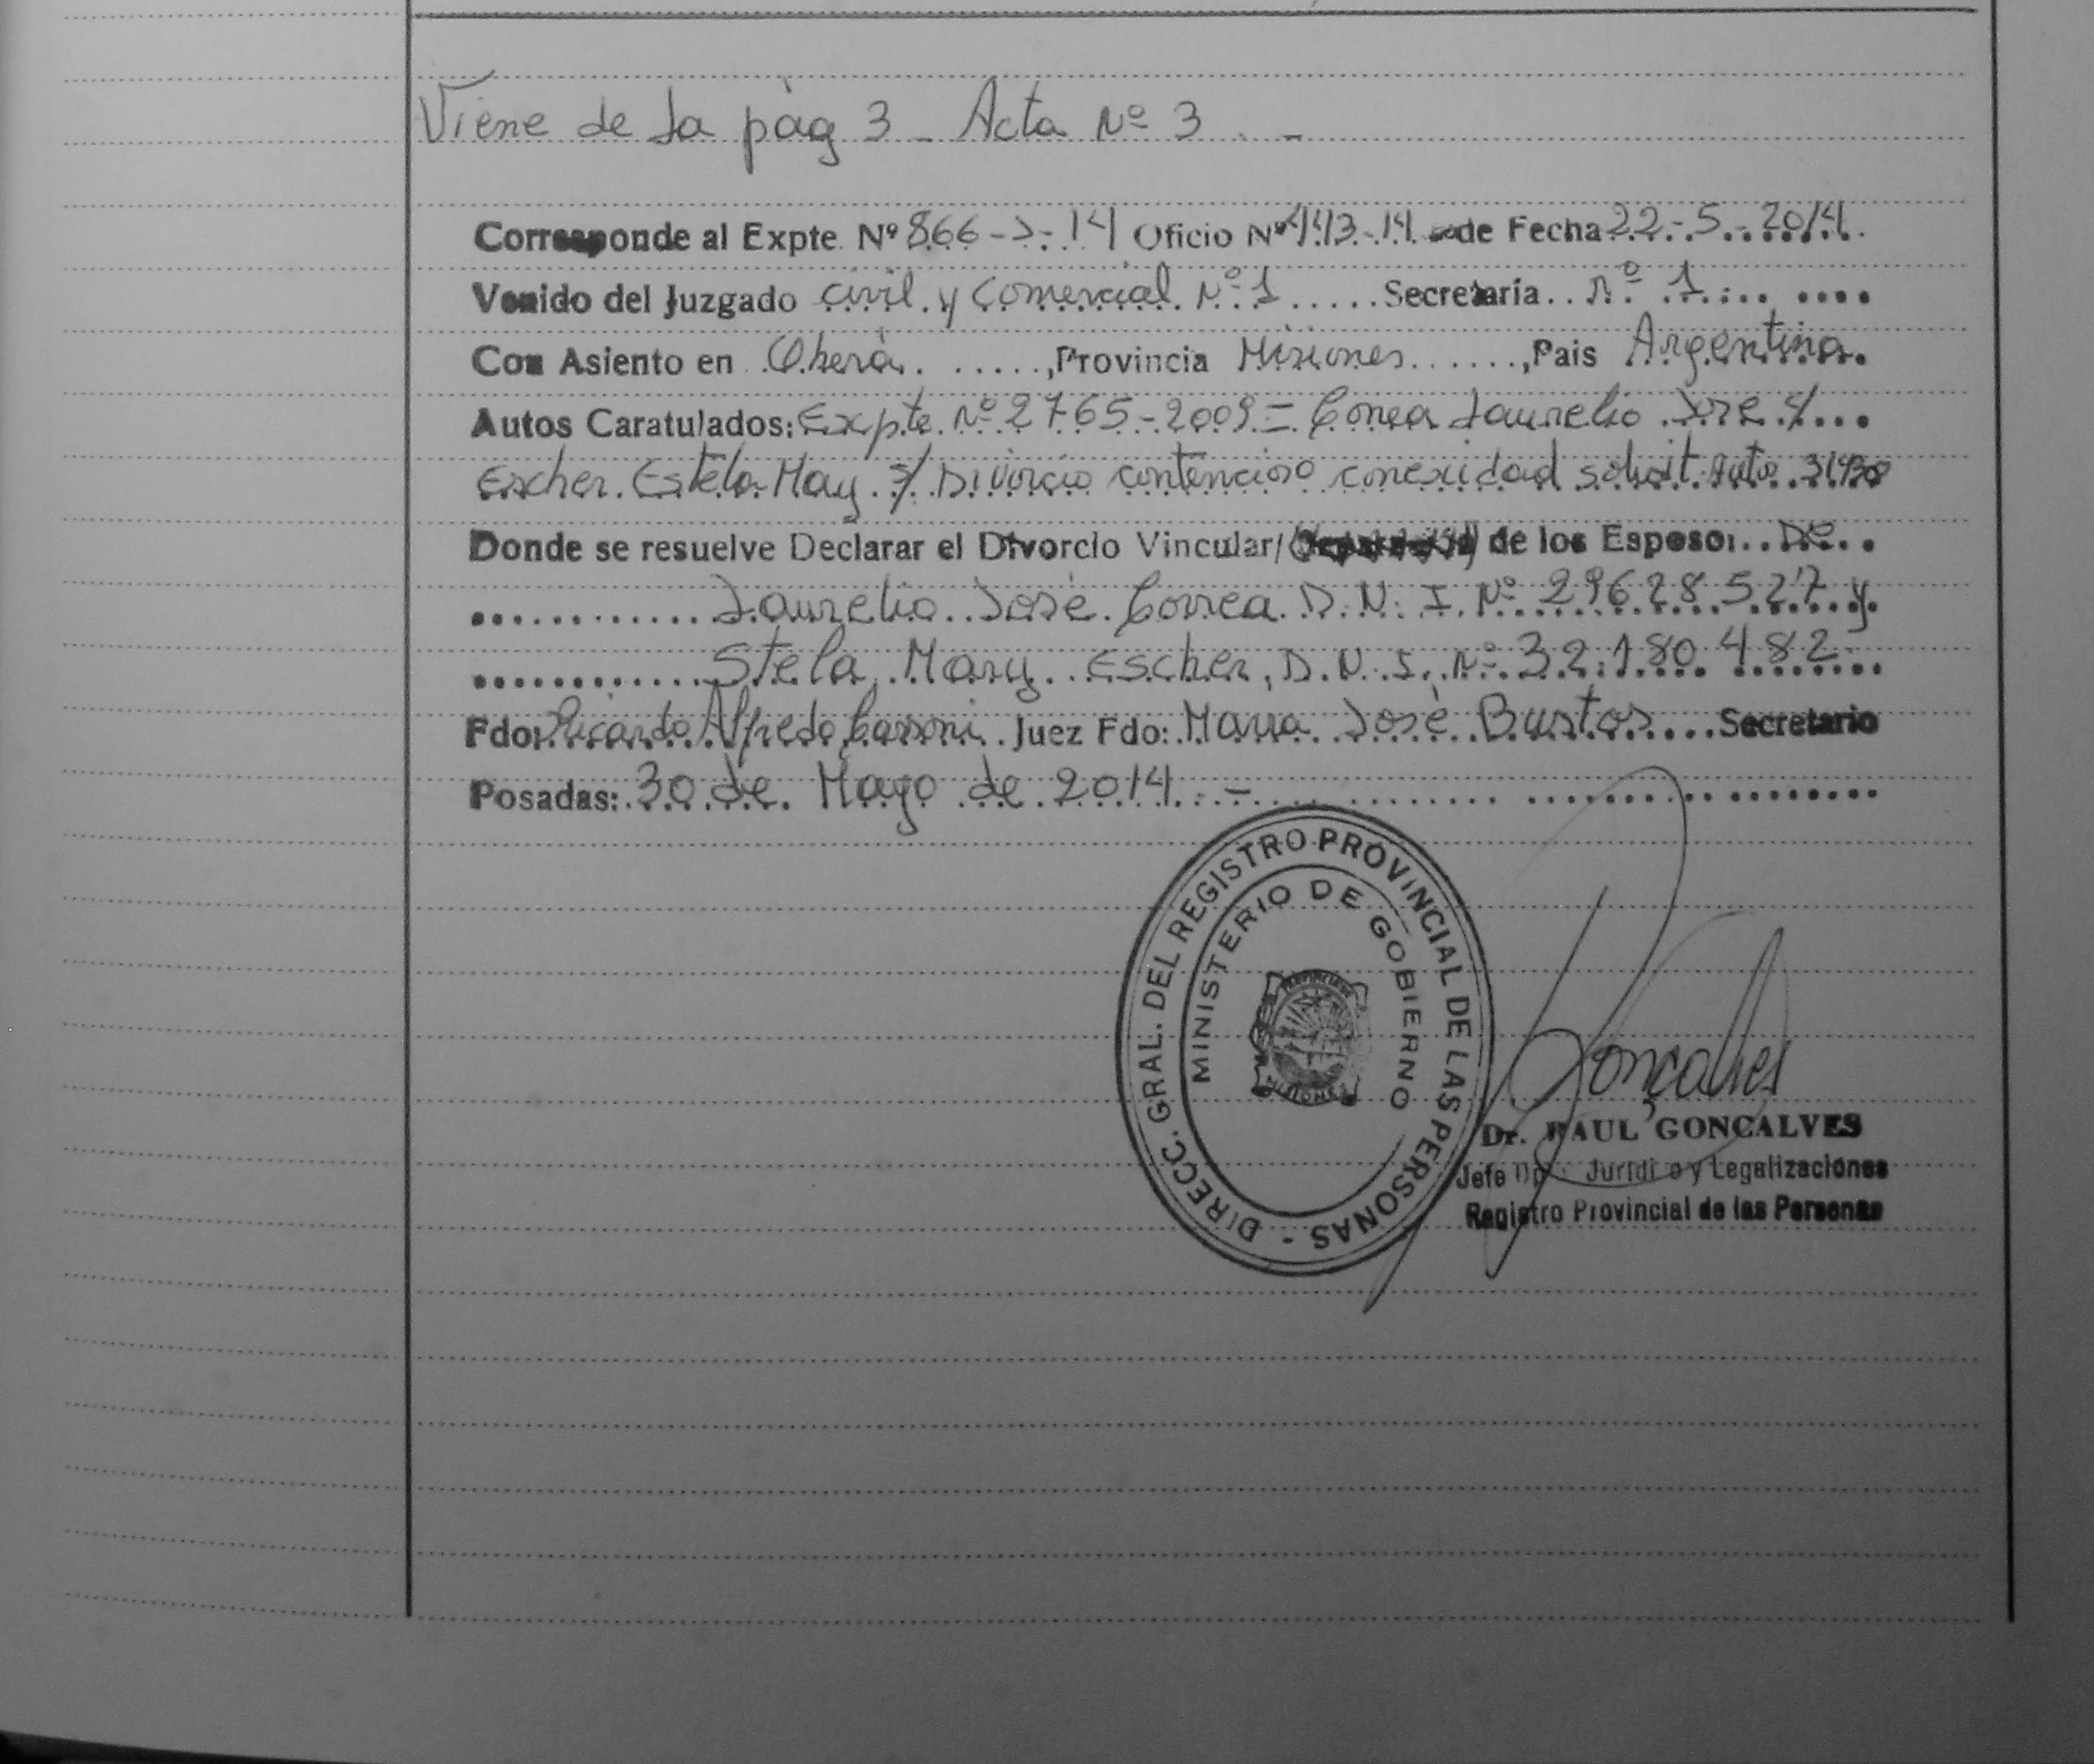 Viene de la pàg 3 - Acta Nº 3 . -
Corresponde al Expte. Nº 866-J-14 Oficio Nº 443-14 de Fecha 22-5-2014.
Venido del Juzgado civil y Comercial Nº 1 ..... Secretaría .. Nº 1 ....
Con Asiento en Oberà. ....., Provincia Misiones ......, Pais Argentina.
Autos Caratulados: Expte. Nº 2765-2009 = Correa Laurelio Jose s/...
Escher Estela May s/ Divorcio contencioso conexidad solicit. Auto
Donde se resuelve Declarar el Divorcio Vincular/ de los Esposos .. De ..
............ Laurelio Josè Correa D.N.I. Nº 29628527 y
............ Stela Mary Escher, D.N.I. Nº 32.180.482-
Fdo: Ricardo Alfredo Juez Fdo: Maria Josè Bustos ... Secretario
Posadas: 30 de Mayo de 2014.-
DIRECC. GRAL. DEL REGISTRO PROVINCIAL DE LAS PERSONAS -
MINISTERIO DE GOBIERNO
MISIONES
Gonçalves
Dr. RAUL GONCALVES
Jefe Jurídico y Legalizaciones
Registro Provincial de las Personas